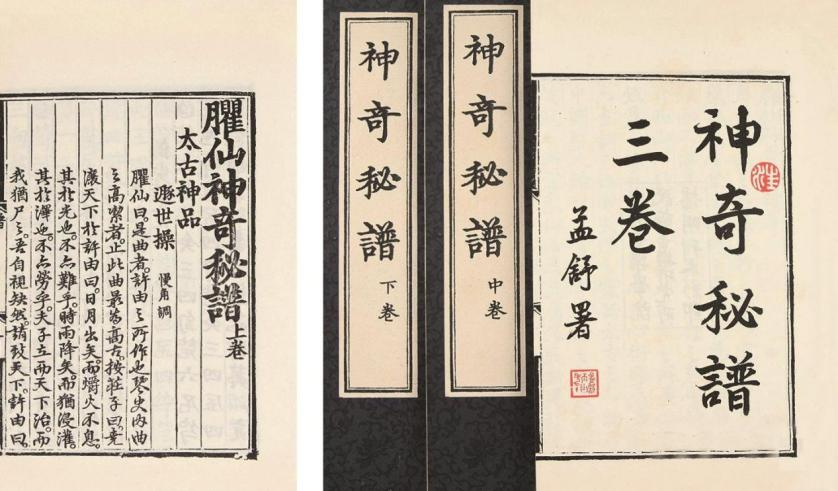 臞仙神奇秘譜 上卷
太古神品
遯世操 慢角調
臞仙曰是曲者。許由之所作也。琴史內曲
之高潔者。止此曲最為高古。按莊子曰。堯
讓天下於許由曰。日月出矣。而爝火不息。
其於光也。不亦難乎。時雨降矣。而猶浸灌。
其於澤也。不亦勞乎。夫子立而天下治。而
我猶尸之。吾自視缺然。請致天下。許由曰。
神奇秘譜
三卷
孟舒署
神奇秘譜 中卷
神奇秘譜 下卷